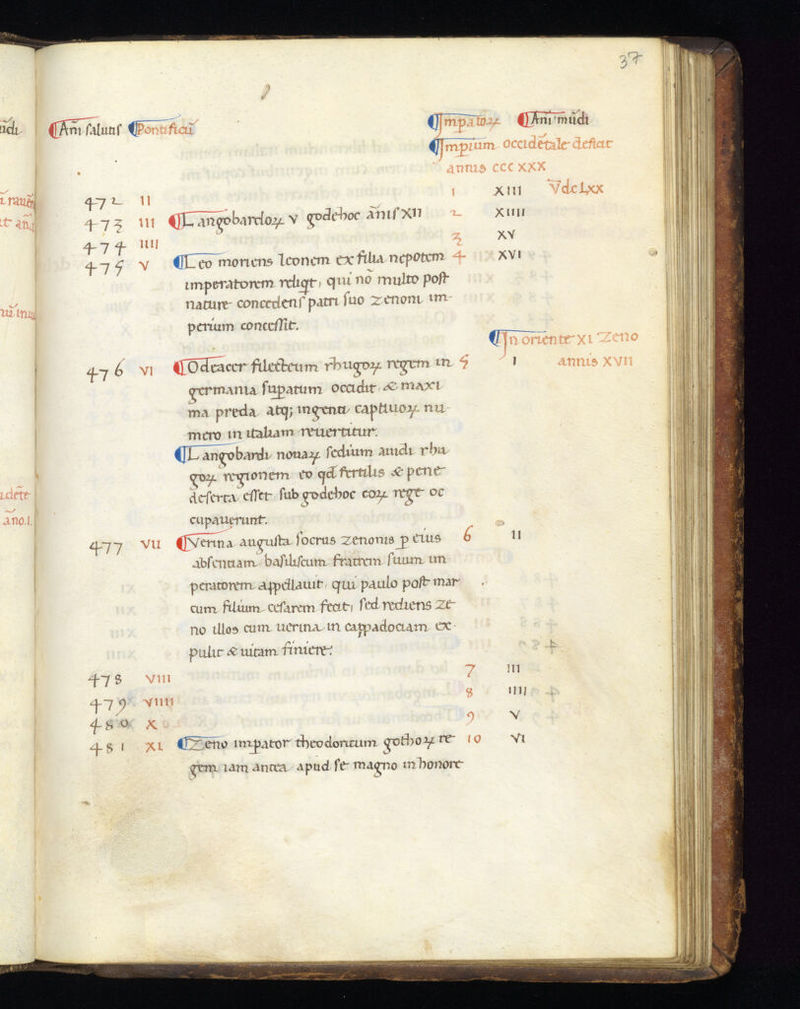 37
Ani salutis Pontificu Impatoꝝ Ani mudi
Impium occidetale deficit
annis CCC XXX
472 II 1 XIII VdcLxx
473 III Langobardoꝝ V godehoc anis XII 2 XIIII
474 IIII 3 XV
475 V Leo moriens leonem ex filia nepotem 4 XVI
imperatorem reliqt, qui no multo post
nature concedens patri suo zenoni im-
perium concessit.
In oriente XI Zeno
476 VI Odoacer fileteum rhugoꝝ regem in 5 I annis XVII
germania supatum occidit & maxi
ma preda atq; ingenti captiuoꝝ nu-
mero in italiam reuertitur.
Langobardi nouaꝝ sedium auidi rhu
goꝝ regionem eo qd fertilis & pene
deserta esset sub godehoc eoꝝ rege oc
cupauerunt.
477 VII Verina augusta socrus zenonis p eius 6 II
absentiam basiliscum fratrem suum im
peratorem appellauit, qui paulo post mar
cum filium cesarem fecit, sed rediens ze
no illos cum uerina in cappadociam ex-
pulit & uitam finiere.
478 VIII 7 III
479 VIIII 8 IIII
480 X 9 V
481 XI Zeno impator theodoricum gothoꝝ re 10 VI
gem iam antea apud se magno in honore